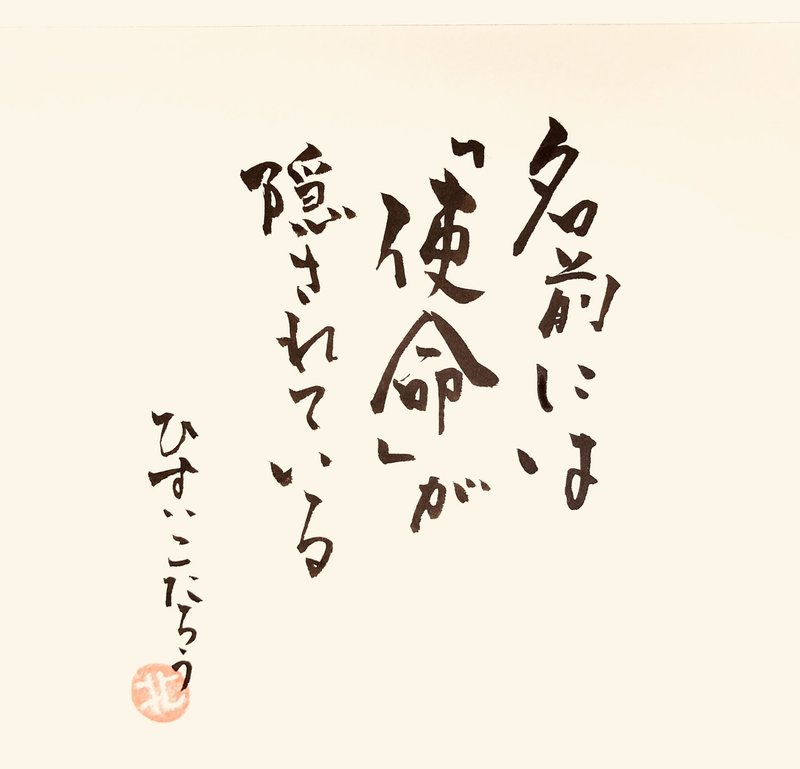 名前には
「使命」が
隠されている
ひすいこたろう
北